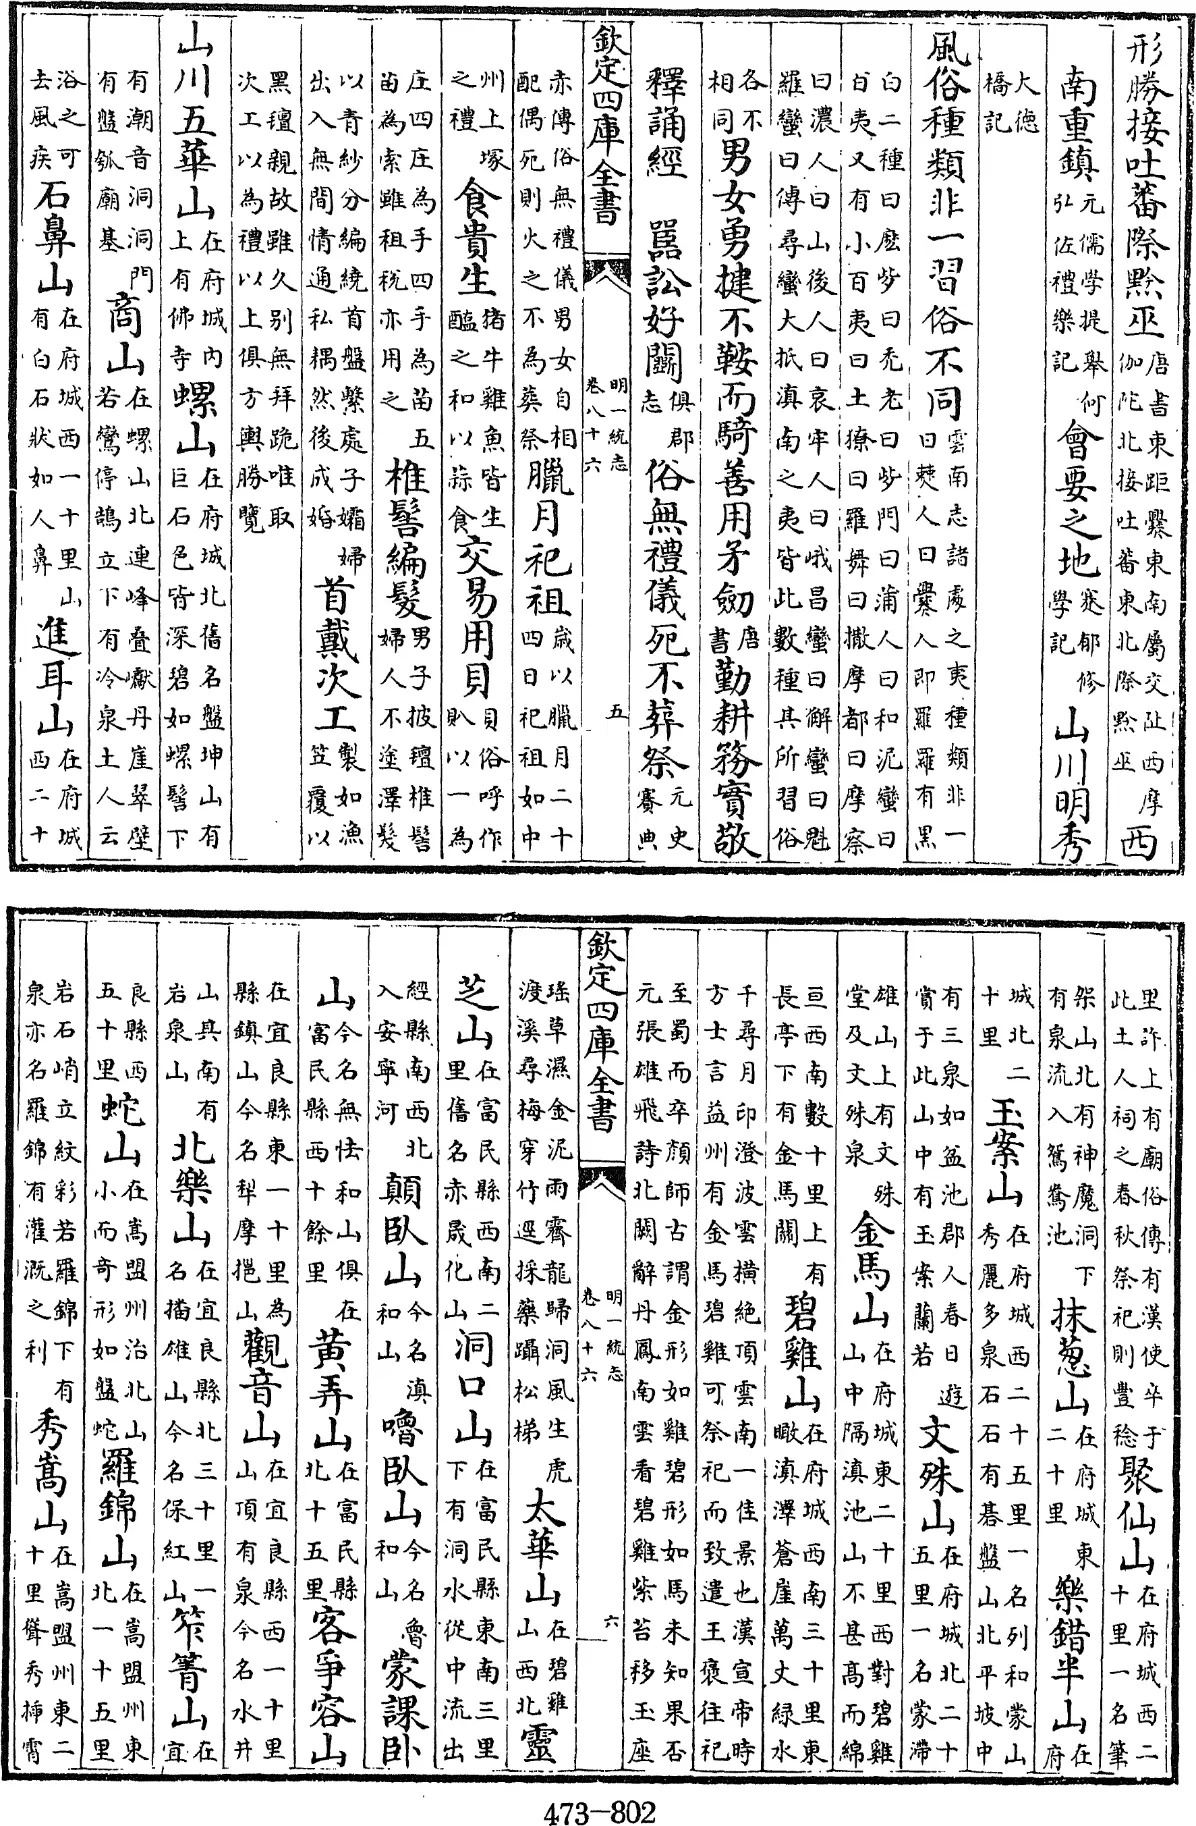 形勝接吐蕃際黔巫唐書東距爨東南屬交趾西摩伽陀北接吐蕃東北際黔巫西
南重鎮元儒學提舉何弘佐禮樂記會要之地郁修學記山川明秀
大德橋記
風俗種類非一習俗不同雲南志諸處之夷種類非一曰僰人曰爨人即羅羅有黑
白二種曰麽些曰禿老曰些門曰蒲人曰和泥蠻曰白夷又有小百夷曰土獠曰羅舞曰撒摩都曰摩察
曰濃人曰山後人曰哀牢人曰峨昌蠻曰獬蠻曰魁羅蠻曰傳尋蠻大抵滇南之夷皆此數種其所習俗
各不相同男女勇捷不鞍而騎善用矛劒唐書勤耕務實敬
釋誦經 囂訟好鬭俱郡志俗無禮儀死不葬祭元史賽典
欽定四庫全書 明一統志 卷八十六 五
赤傳俗無禮儀男女自相配偶死則火之不為葬祭臘月祀祖歲以臘月二十四日祀祖如中
州上塚之禮食貴生猪牛雞魚皆生醢之和以蒜食交易用貝貝俗呼作𧴩以一為
庄四庄為手四手為苗五苗為索雖租稅亦用之椎髻編髮男子披氊椎髻婦人不塗澤髮
以青紗分編繞首盤繫處子孀婦出入無間情通私耦然後成婚首戴次工製如漁笠覆以
黑氊親故雖久别無拜跪唯取次工以為禮以上俱方輿勝覽
山川五華山在府城内上有佛寺螺山在府城北舊名盤坤山有巨石色皆深碧如螺髻下
有潮音洞洞門有盤瓠廟基商山在螺山北連峰叠巘丹崖翠壁若鸞停鵠立下有冷泉土人云
浴之可去風疾石鼻山在府城西一十里山有白石狀如人鼻進耳山在府城西二十
里許上有廟俗傳有漢使卒于此土人祠之春秋祭祀則豐稔聚仙山在府城西二十里一名筆
架山北有神魔洞下有泉流入鴛鴦池抹葱山在府城東二十里樂錯半山在府
城北二十里玉案山在府城西二十五里一名列和蒙山秀麗多泉石石有碁盤山北平坡中
有三泉如盆池郡人春日遊賞于此山中有玉案蘭若文殊山在府城北二十五里一名蒙滯
雄山上有文殊堂及文殊泉金馬山在府城東二十里西對碧雞山中隔滇池山不甚高而綿
亘西南數十里上有長亭下有金馬關碧雞山在府城西南三十里東瞰滇澤蒼崖萬丈緑水
千尋月印澄波雲横絶頂雲南一佳景也漢宣帝時方士言益州有金馬碧雞可祭祀而致遣王褒往祀
至蜀而卒顔師古謂金形如雞碧形如馬未知果否元張雄飛詩北闕辭丹鳳南雲看碧雞紫苔移玉座
欽定四庫全書 明一統志 卷八十六 六
瑤草濕金泥雨霽龍歸洞風生虎渡溪尋梅穿竹逕採藥躡松梯太華山在碧雞山西北靈
芝山在富民縣西南二里舊名赤晟化山洞口山在富民縣東南三里下有洞水從中流出
經縣南西北入安寧河顛卧山今名滇和山嚕卧山今名魯和山蒙課卧
山今名無怯和山俱在富民縣西十餘里黄弄山在富民縣北十五里客爭容山
在宜良縣東一十里為縣鎮山今名犁摩挹山觀音山在宜良縣西一十里山頂有泉今名水井
山其南有岩泉山北樂山在宜良縣北三十里一名描雄山今名保紅山笮箐山在宜
良縣西五十里蛇山在嵩盟州治北山小而奇形如盤蛇羅錦山在嵩盟州東北一十五里
岩石峭立紋彩若羅錦下有泉亦名羅錦有灌溉之利秀嵩山在嵩盟州東二十里聳秀揷霄
473-802